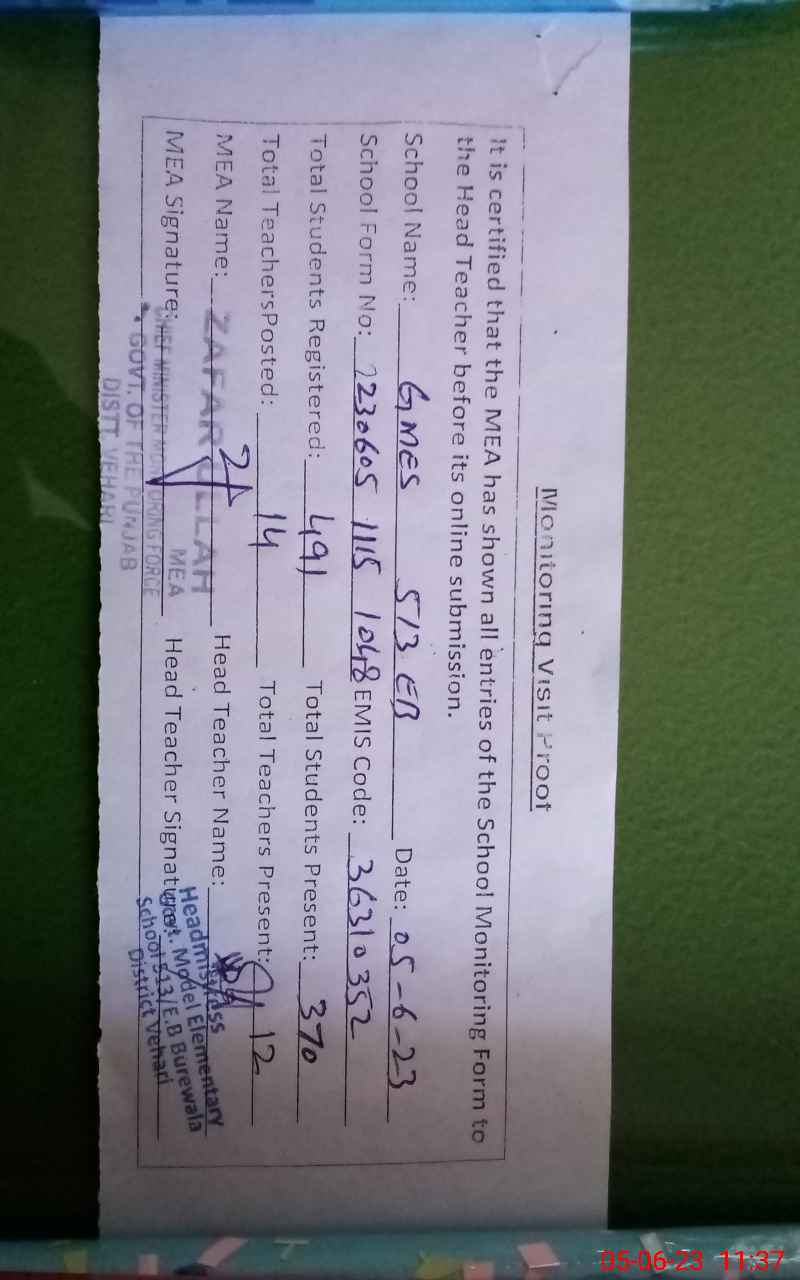 Monitoring Visit Proof
It is certified that the MEA has shown all entries of the School Monitoring Form to
the Head Teacher before its online submission.
School Name: GMES 513 EB Date: 05-6-23
School Form No: 230605 1115 1048 EMIS Code: 36310352
Total Students Registered: 491 Total Students Present: 370
Total TeachersPosted: 14 Total Teachers Present: 12
MEA Name: ZAFAR ULLAH Head Teacher Name:
MEA Signature: MEA Head Teacher Signature:
CHIEF MINISTER MONITORING FORCE
GOVT. OF THE PUNJAB
DISTT. VEHARI
Headmistress
Govt. Model Elementary
School 513/E.B Burewala
District Vehari
05-06-23 11:37